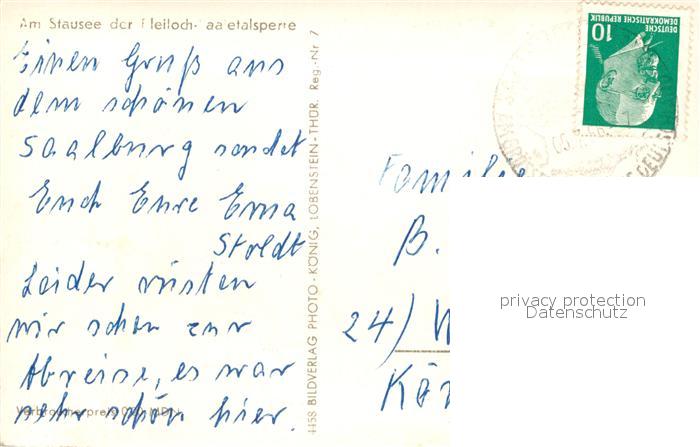 Am Stausee der Bleiloch-Saaletalsperre
Einen Gruß aus
dem schönen
Saalburg sendet
Euch Eure Erna
Stoldt
Leider rüsten
wir schon zur
Abreise, es war
sehr schön hier.
Verbraucherpreis
4458 BILDVERLAG PHOTO-KÖNIG, LOBENSTEIN-THÜR. Reg.-Nr 7
DEUTSCHE
DEMOKRATISCHE REPUBLIK
10
Familie
B.
24) W
Kör
privacy protection
Datenschutz